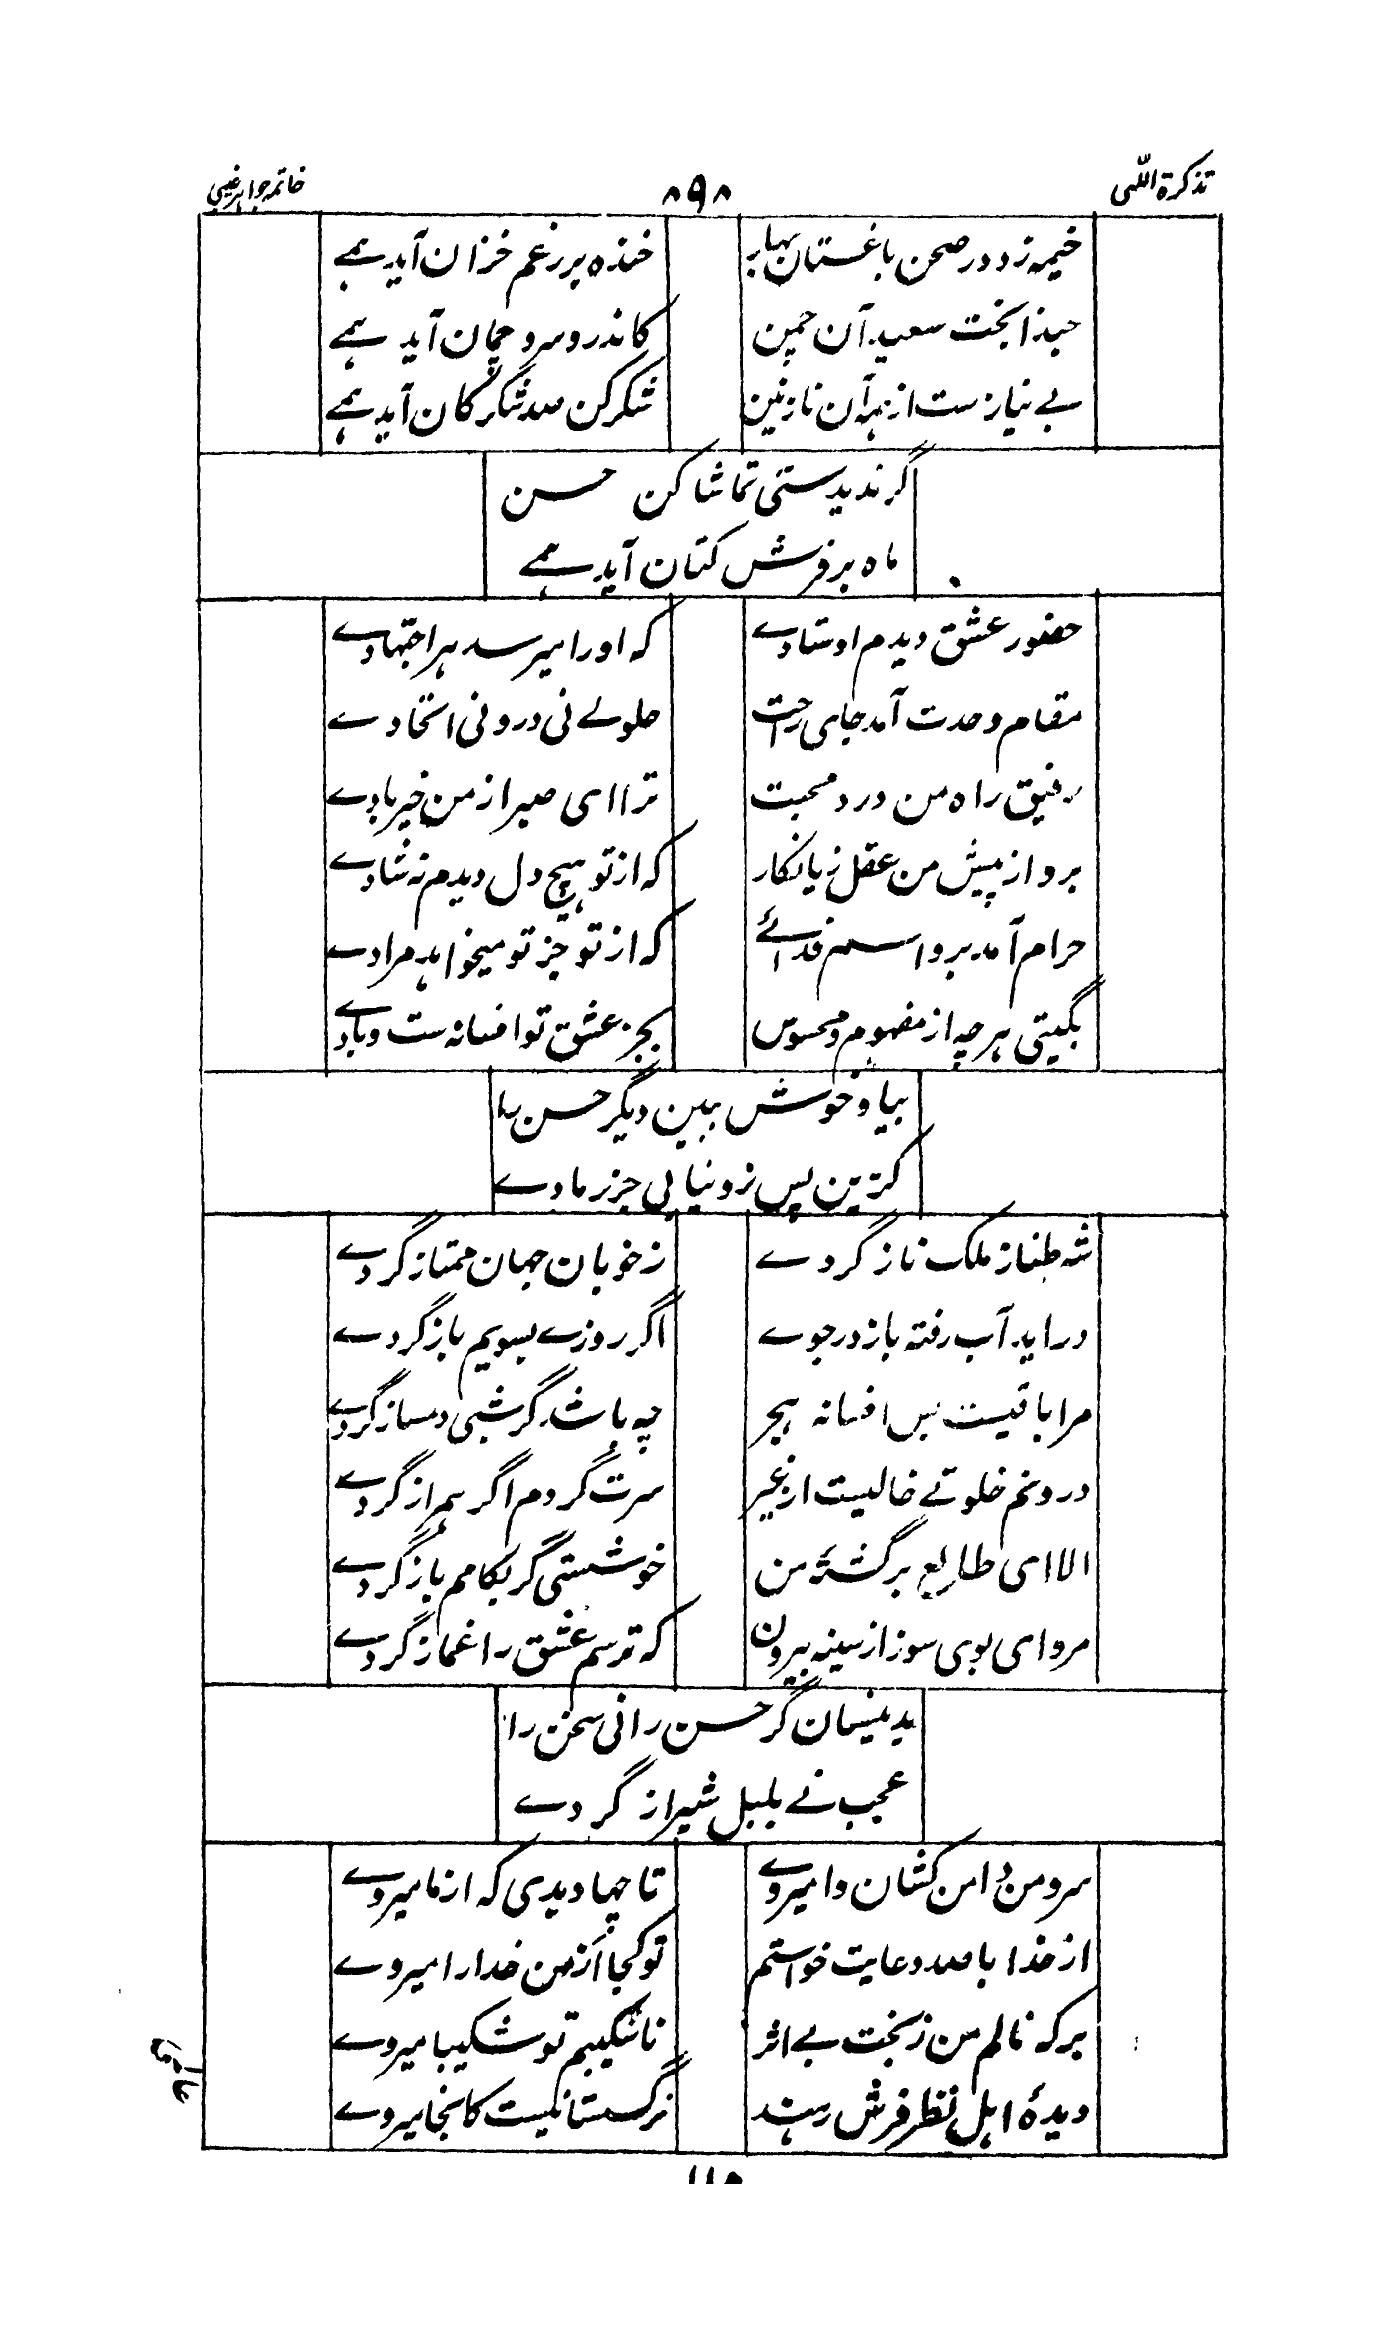 تذکرة اللّٰهی ۸۹۸ خاتمه جواهر غیبی
خیمه زد در صحن باغستان بهار خنده بر زعم خزان آید ہمے
حبذا بخت سعید آن چمن کاندرو سرو چمان آید ہمے
بے نیاز ست از ہمہ آن نازنین شکر کن صد شکر کان آید ہمے
گر ندیدستی تماشا کن حسن
ماه بر فرش کتان آید ہمے
حضور عشق دیدم اوستادے که او را میرسد ہر اجتہادے
مقام وحدت آمد جای راحت حلولے نی درو نی اتحادے
رفیق راه من درد محبت ترا ای صبر از من خیربادے
برو از پیش من عقل زیانکار که از تو ہیچ دل دیدم نہ شادے
حرام آمد برو اسم فدائے که از تو جز تو میخواہد مرادے
بگیتی ہر چہ از مفہوم و محسوس بجز عشق تو افسانہ ست و بادے
بیا و خوش ببین دیگر حسن را
کزین پس زو نیابی جز رمادے
شہ طناز ملک ناز گردے ز خوبان جہان ممتاز گردے
در اید آب رفتہ باز در جوے اگر روزے بسویم باز گردے
مرا باقیست بس افسانہ ہجر چہ باشد گر شبی دمساز گردے
درونم خلوتے خالیست از غیر سرت گردم اگر ہمراز گردے
الا ای طالع برگشتۂ من خوشستی گر بکامم باز گردے
مرو ای بوی سوز از سینہ بیرون که ترسم عشق را غماز گردے
بدینسان گر حسن رانی سخن را
عجب نے بلبل شیراز گردے
سرو من دامن کشان وا میروے تا چہا دیدی که از ما میروے
از خدا با صد دعایت خواستم تو کجا از من خدا را میروے
بر که نالم من ز بخت بے اثر ناشکیبم تو شکیبا میروے
دیدۂ اہل نظر فرش رہند نرگسستانیست کانجا میروے
۱۱۵